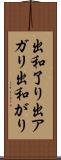 出和了り出アガり出和がり